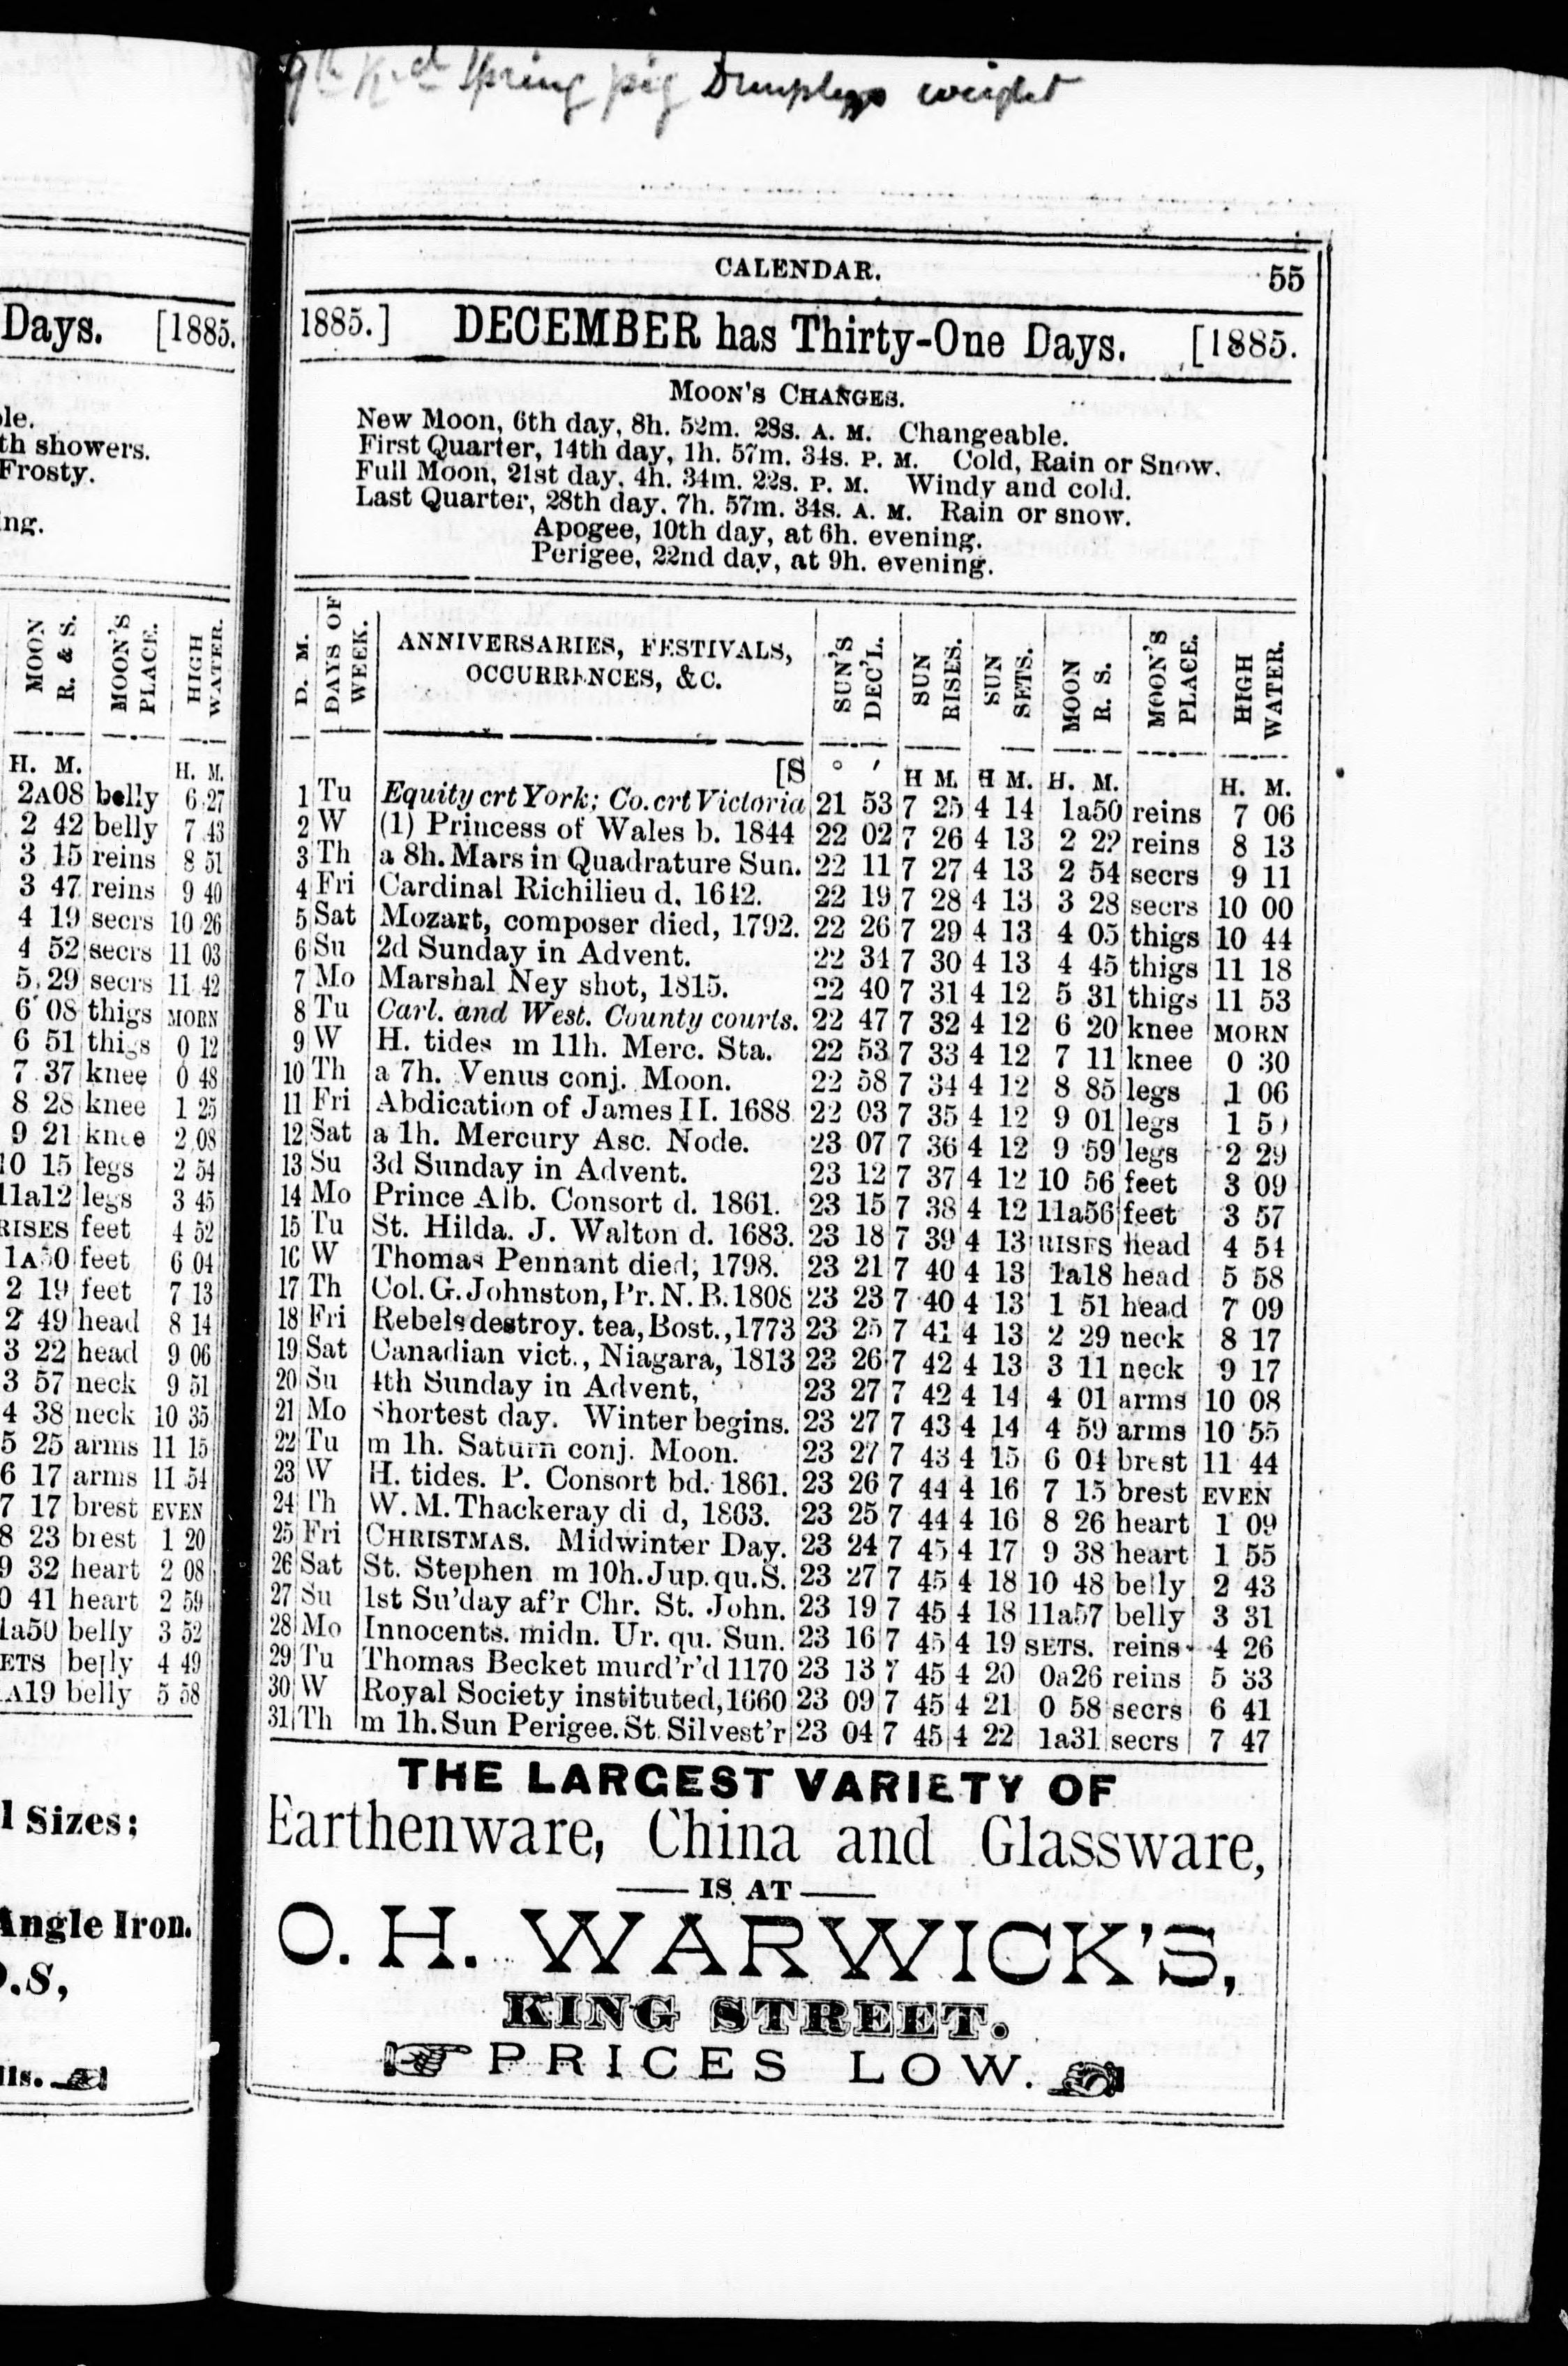 9th K..d Spring pig Dumplyn weight
Days. [1885.
le.
th showers.
Frosty.
ng.
MOON R. & S. MOON'S PLACE. HIGH WATER.
H. M. H. M.
2A08 belly 6 27
2 42 belly 7 43
3 15 reins 8 51
3 47 reins 9 40
4 19 secrs 10 26
4 52 secrs 11 03
5 29 secrs 11 42
6 08 thigs MORN
6 51 thigs 0 12
7 37 knee 0 48
8 28 knee 1 25
9 21 knee 2 08
10 15 legs 2 54
11a12 legs 3 45
RISES feet 4 52
1A50 feet 6 04
2 19 feet 7 13
2 49 head 8 14
3 22 head 9 06
3 57 neck 9 51
4 38 neck 10 35
5 25 arms 11 15
6 17 arms 11 54
7 17 brest EVEN
8 23 brest 1 20
9 32 heart 2 08
0 41 heart 2 59
1a50 belly 3 52
ETS belly 4 49
A19 belly 5 58
l Sizes;
Angle Iron.
.S,
lls.
CALENDAR. 55
1885.] DECEMBER has Thirty-One Days. [1885.
MOON'S CHANGES.
New Moon, 6th day, 8h. 52m. 28s. A. M. Changeable.
First Quarter, 14th day, 1h. 57m. 34s. P. M. Cold, Rain or Snow.
Full Moon, 21st day, 4h. 34m. 22s. P. M. Windy and cold.
Last Quarter, 28th day. 7h. 57m. 34s. A. M. Rain or snow.
Apogee, 10th day, at 6h. evening.
Perigee, 22nd day, at 9h. evening.
D. M. DAYS OF WEEK. ANNIVERSARIES, FESTIVALS, OCCURRENCES, &C. SUN'S DEC'L. SUN RISES. SUN SETS. MOON R. S. MOON'S PLACE. HIGH WATER.
[S ° ′ H M. H M. H. M. H. M.
1 Tu Equity crt York; Co. crt Victoria 21 53 7 25 4 14 1a50 reins 7 06
2 W (1) Princess of Wales b. 1844 22 02 7 26 4 13 2 22 reins 8 13
3 Th a 8h. Mars in Quadrature Sun. 22 11 7 27 4 13 2 54 secrs 9 11
4 Fri Cardinal Richilieu d. 1642. 22 19 7 28 4 13 3 28 secrs 10 00
5 Sat Mozart, composer died, 1792. 22 26 7 29 4 13 4 05 thigs 10 44
6 Su 2d Sunday in Advent. 22 34 7 30 4 13 4 45 thigs 11 18
7 Mo Marshal Ney shot, 1815. 22 40 7 31 4 12 5 31 thigs 11 53
8 Tu Carl. and West. County courts. 22 47 7 32 4 12 6 20 knee MORN
9 W H. tides m 11h. Merc. Sta. 22 53 7 33 4 12 7 11 knee 0 30
10 Th a 7h. Venus conj. Moon. 22 58 7 34 4 12 8 85 legs 1 06
11 Fri Abdication of James II. 1688 22 03 7 35 4 12 9 01 legs 1 5
12 Sat a 1h. Mercury Asc. Node. 23 07 7 36 4 12 9 59 legs 2 29
13 Su 3d Sunday in Advent. 23 12 7 37 4 12 10 56 feet 3 09
14 Mo Prince Alb. Consort d. 1861. 23 15 7 38 4 12 11a56 feet 3 57
15 Tu St. Hilda. J. Walton d. 1683. 23 18 7 39 4 13 RISES head 4 54
16 W Thomas Pennant died, 1798. 23 21 7 40 4 13 1a18 head 5 58
17 Th Col. G. Johnston, Pr. N. B. 1808 23 23 7 40 4 13 1 51 head 7 09
18 Fri Rebels destroy. tea, Bost., 1773 23 25 7 41 4 13 2 29 neck 8 17
19 Sat Canadian vict., Niagara, 1813 23 26 7 42 4 13 3 11 neck 9 17
20 Su 4th Sunday in Advent, 23 27 7 42 4 14 4 01 arms 10 08
21 Mo Shortest day. Winter begins. 23 27 7 43 4 14 4 59 arms 10 55
22 Tu m 1h. Saturn conj. Moon. 23 27 7 43 4 15 6 04 brest 11 44
23 W H. tides. P. Consort bd. 1861. 23 26 7 44 4 16 7 15 brest EVEN
24 Th W. M. Thackeray di d, 1863. 23 25 7 44 4 16 8 26 heart 1 09
25 Fri CHRISTMAS. Midwinter Day. 23 24 7 45 4 17 9 38 heart 1 55
26 Sat St. Stephen m 10h. Jup. qu. S. 23 27 7 45 4 18 10 48 belly 2 43
27 Su 1st Su'day af'r Chr. St. John. 23 19 7 45 4 18 11a57 belly 3 31
28 Mo Innocents. midn. Ur. qu. Sun. 23 16 7 45 4 19 SETS. reins 4 26
29 Tu Thomas Becket murd'r'd 1170 23 13 7 45 4 20 0a26 reins 5 33
30 W Royal Society instituted, 1660 23 09 7 45 4 21 0 58 secrs 6 41
31 Th m 1h. Sun Perigee. St. Silvest'r 23 04 7 45 4 22 1a31 secrs 7 47
THE LARGEST VARIETY OF
Earthenware, China and Glassware,
IS AT
O. H. WARWICK'S,
KING STREET.
PRICES LOW.